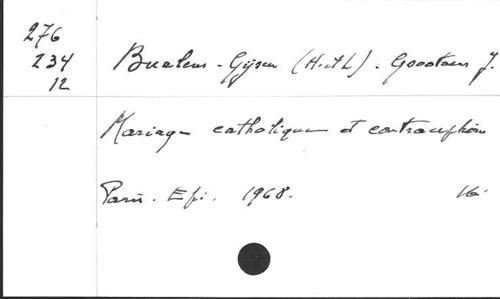 276
234 Buelens-Gijsen (H. et L). Grootaers J.
12
Mariage catholique et contraception
Paris. Epi. 1968.